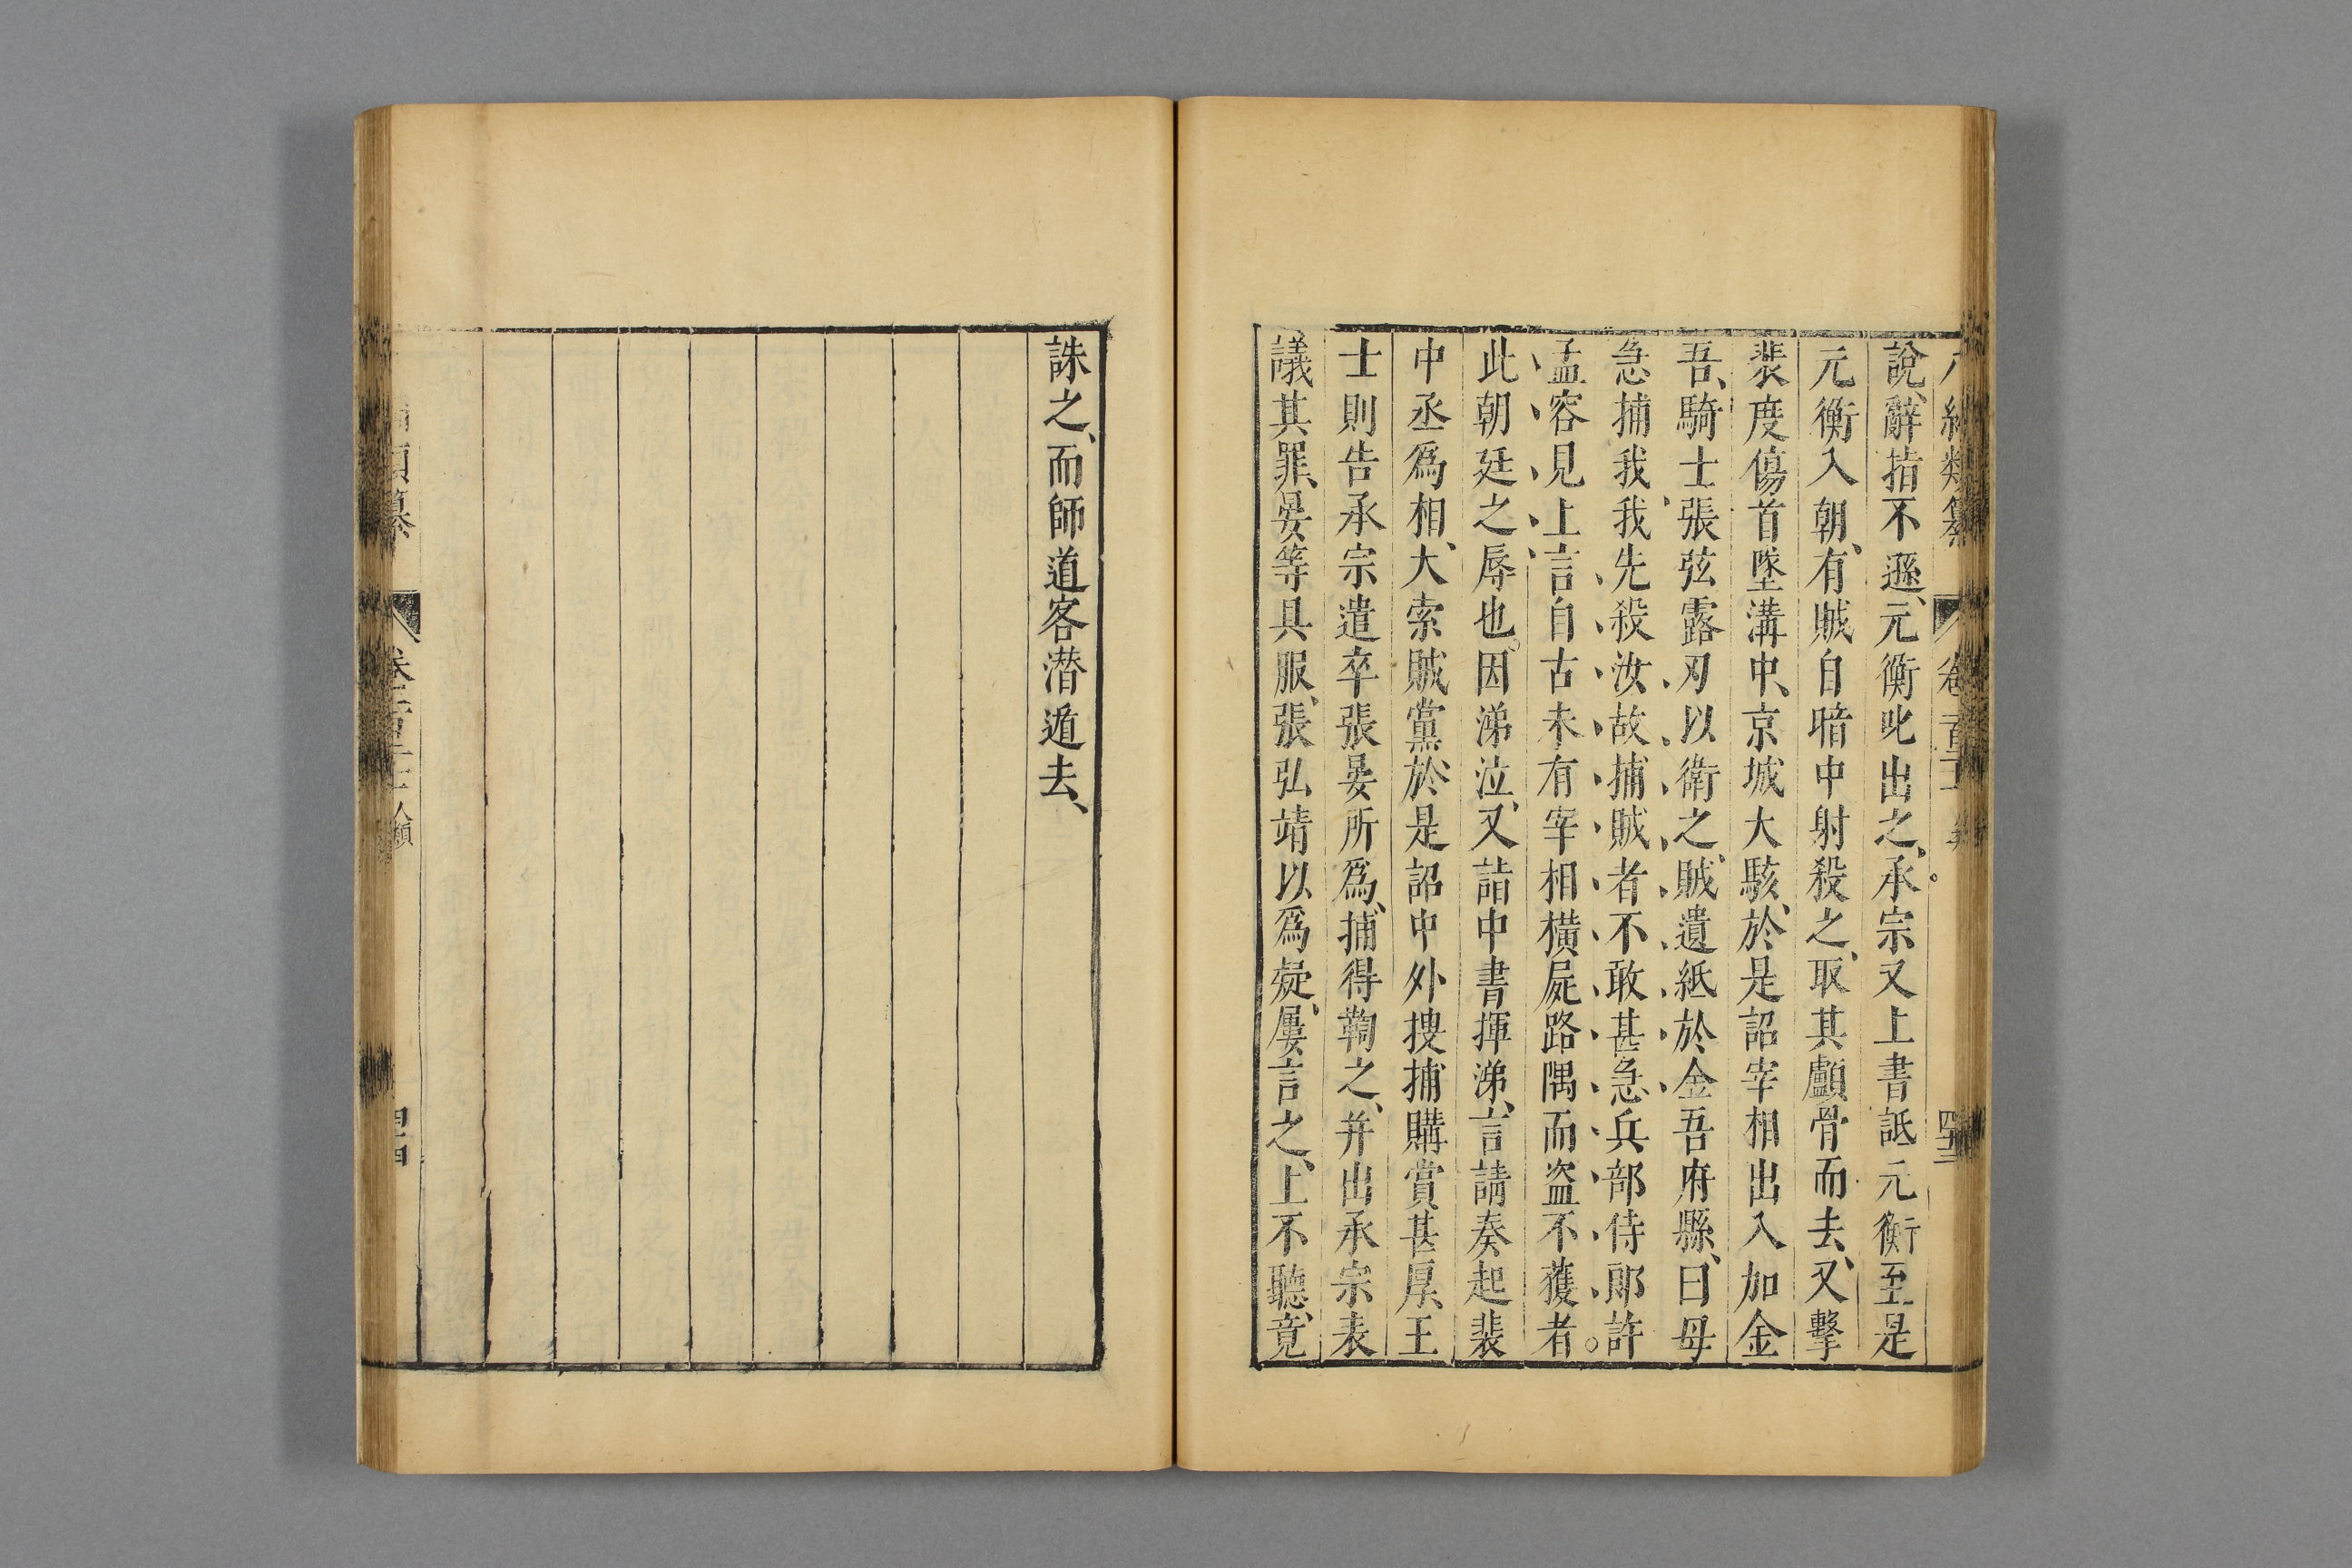 類纂
說、辭指不遜、元衡叱出之、承宗又上書詆元衡至是
元衡入朝、有賊自暗中射殺之、取其顱骨而去、又擊
裴度傷首墜溝中、京城大駭、於是詔宰相出入加金
吾、騎士張弦露刃以衛之、賊遺紙於金吾府縣、曰毋
急捕我我先殺汝故捕賊者不敢甚急兵部侍郎許
孟容見上言自古未有宰相橫屍路隅而盜不獲者。
此朝廷之辱也。因涕泣、又詣中書揮涕、言請奏起裴
中丞爲相、大索賊黨、於是詔中外搜捕購賞甚厚、王
士則告承宗遣卒張晏所爲、捕得鞫之、并出承宗表
議其罪、晏等具服、張弘靖以爲疑、屢言之、上不聽、竟
誅之、而師道客潛遁去、